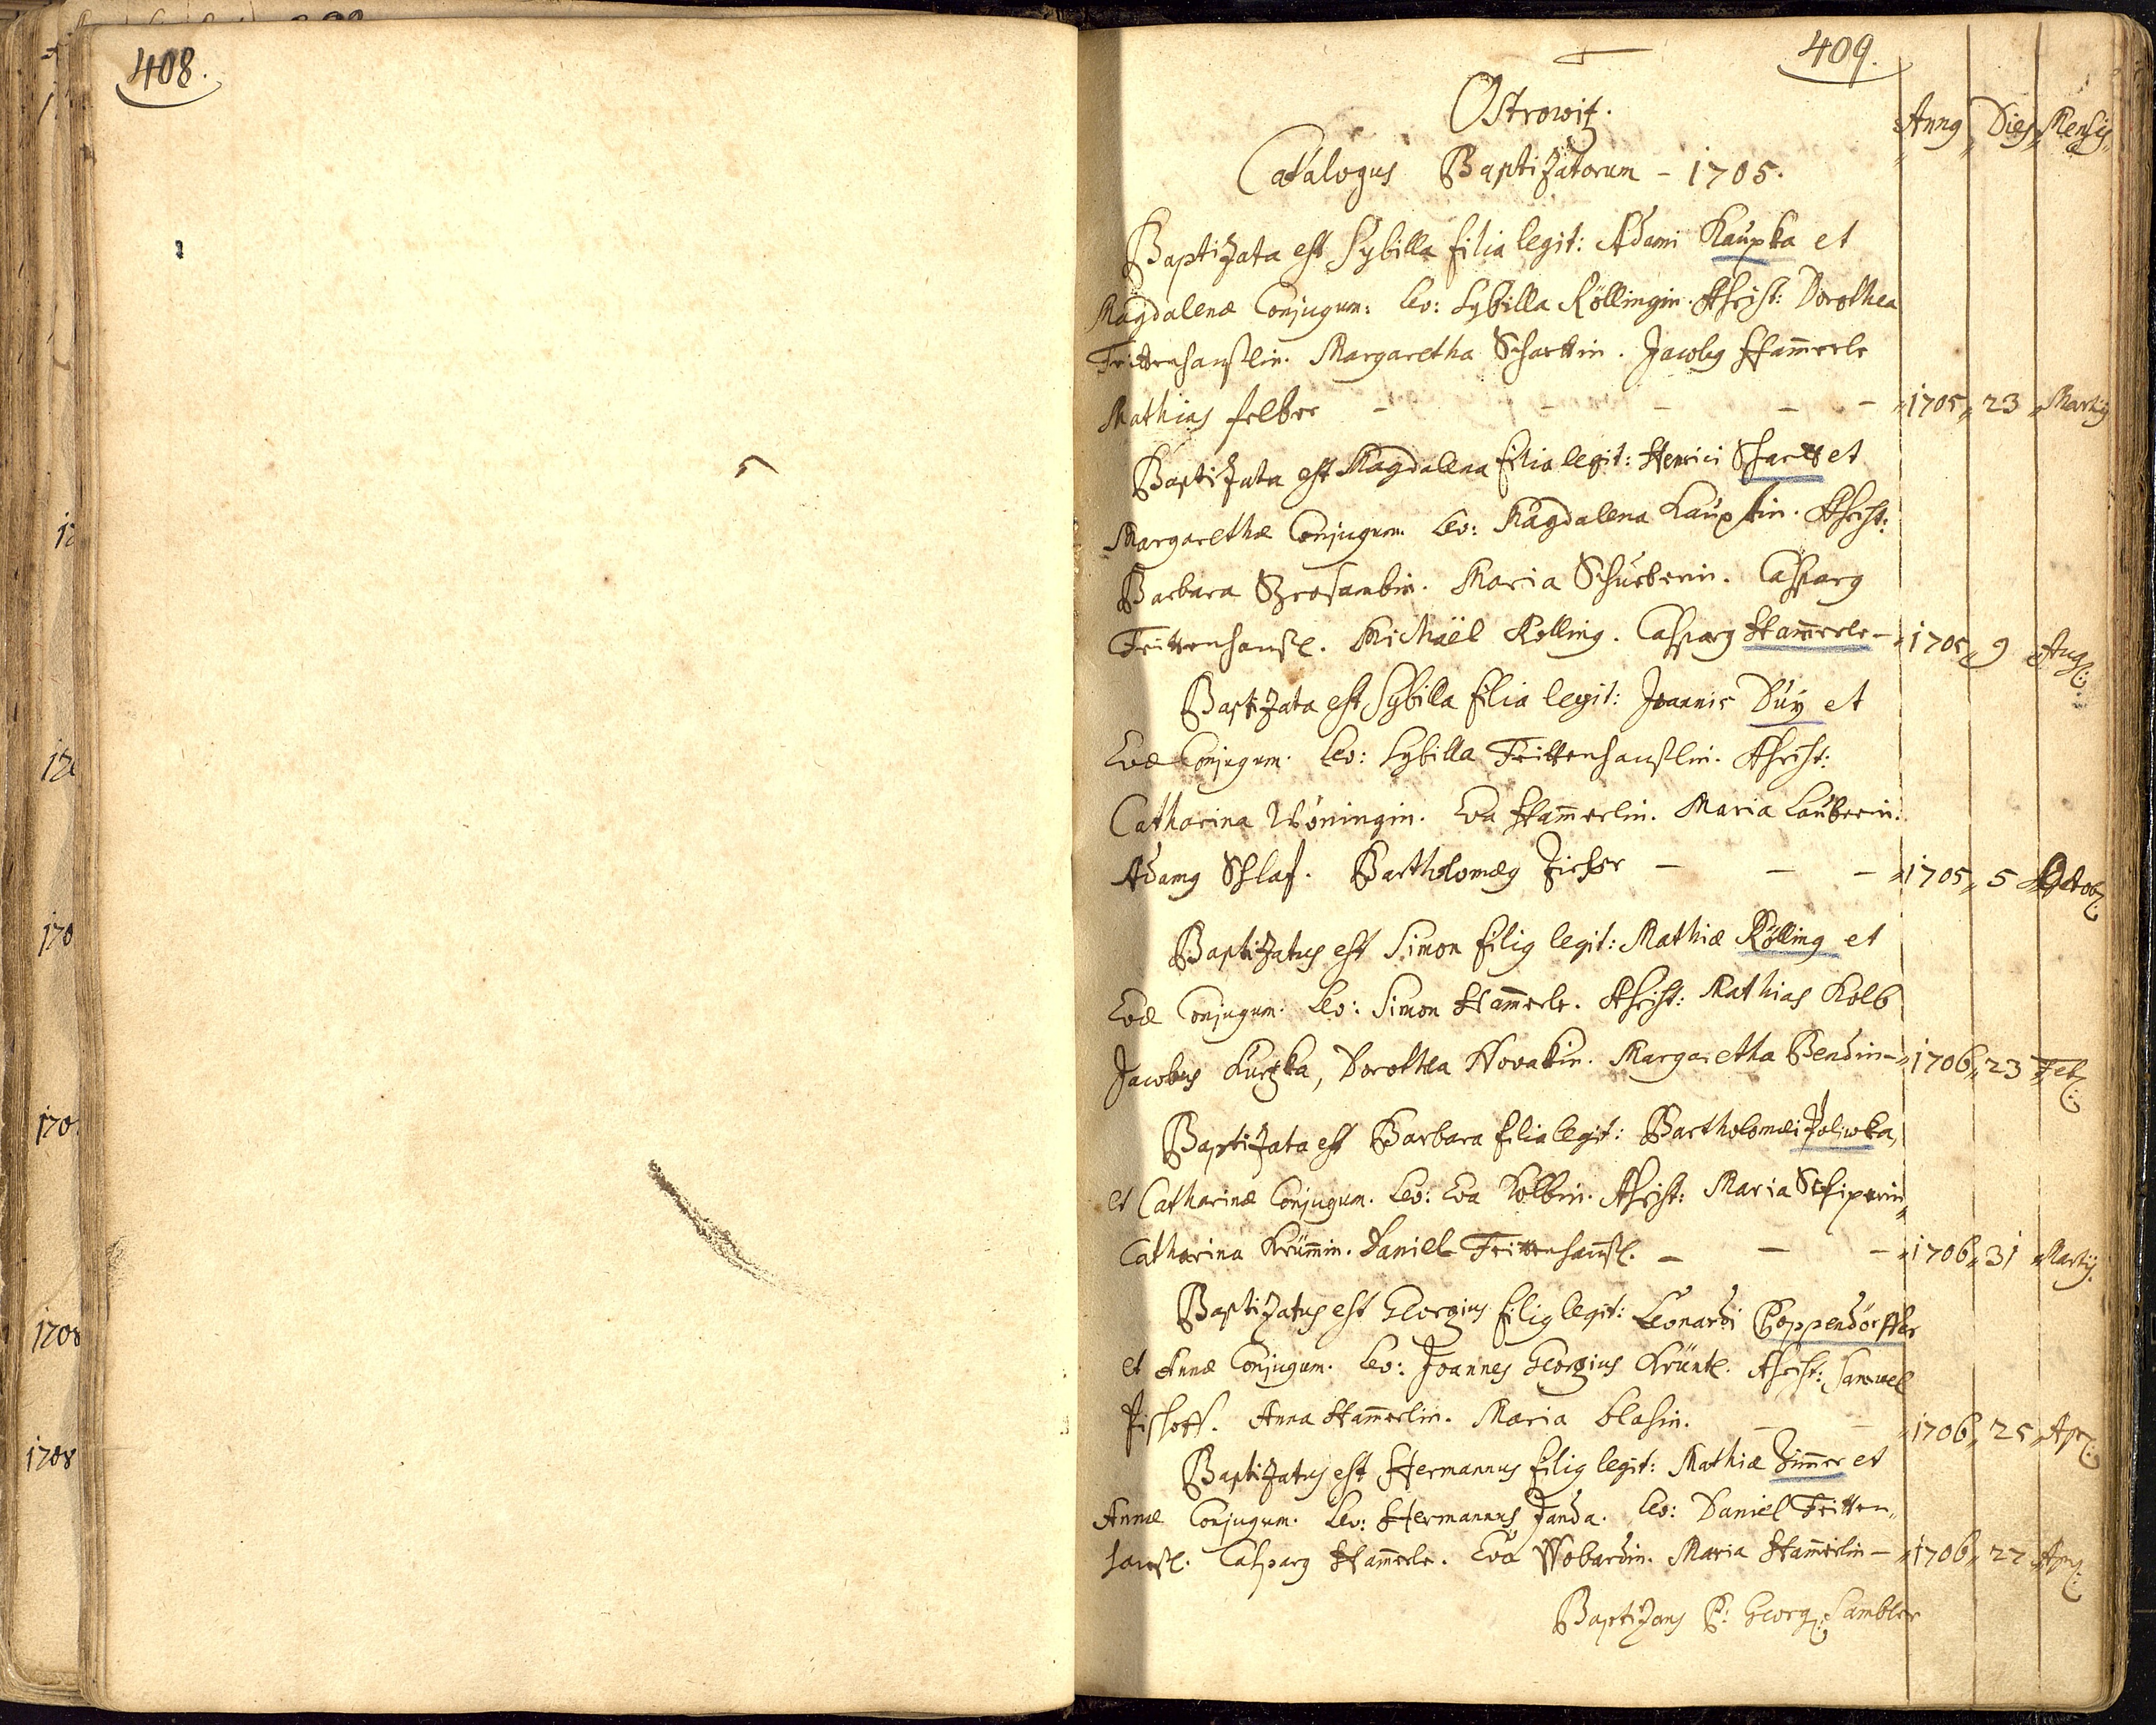 408.
409.
Ostrowitz.
Annus Dies Mensis
Catalogus Baptizatorum - 1705.
Baptizata est Sybilla filia legit: Adami Kaupka et
Magdalenæ Conjugum: Lev: Sybilla Röllingin. Assist: Dorothea
Trittenhanslin. Margaretha Schartin. Jacobus Hammerle
Mathias felber - - - - - 1705 23 Martij
Baptizata est Magdalena filia legit: Henrici et
Margarethæ Conjugum. Lev: Magdalena Kaupkin. Assist:
Barbara. Maria Schusterin. Casparus
Trittenhansl. Michaël Rolling. Casparus Hammerle - 1705 9 Aug:
Baptizata est Sybilla filia legit: Joannis Duy et
Evæ Conjugum. Lev: Sybilla Trittenhanslin. Assist:
Catharina Wöningin. Eva Hammerlin. Maria Lauberin.
Adamus Schlaf. Bartholomæus - - - 1705 5 Octob:
Baptizatus est Simon filius legit: Mathiæ Rölling et
Evæ Conjugum. Lev: Simon Hammerle. Assist: Mathias Kolb
Jacobus Kutzka, Dorothea Novakin. Margaretha Bendin - 1706 23 Feb:
Baptizata est Barbara filia legit: Bartholomæi Poliwka,
et Catharinæ Conjugum. Lev: Eva Kolbin. Assist: Maria
Catharina Krummin. Daniel Trittenhansl. - - - 1706 31 Martij.
Baptizatus est Georgius filius legit: Leonardi Poppendörffer
et Annæ Conjugum. Lev: Joannes Georgius Kräntl. Assist: Samuel
Anna Hammerlin. Maria blasin. - - 1706 25 Apr:
Baptizatus est Hermannus filius legit: Mathiæ Zimmer et
Annæ Conjugum. Lev: Hermannus Janda. Lev: Daniel Tritten
hansl. Casparus Hammerle. Eva Wobardin. Maria Hammerlin - 1706 27
Baptizans P: Georg: Sambler
17
170
170
170
1708
1708